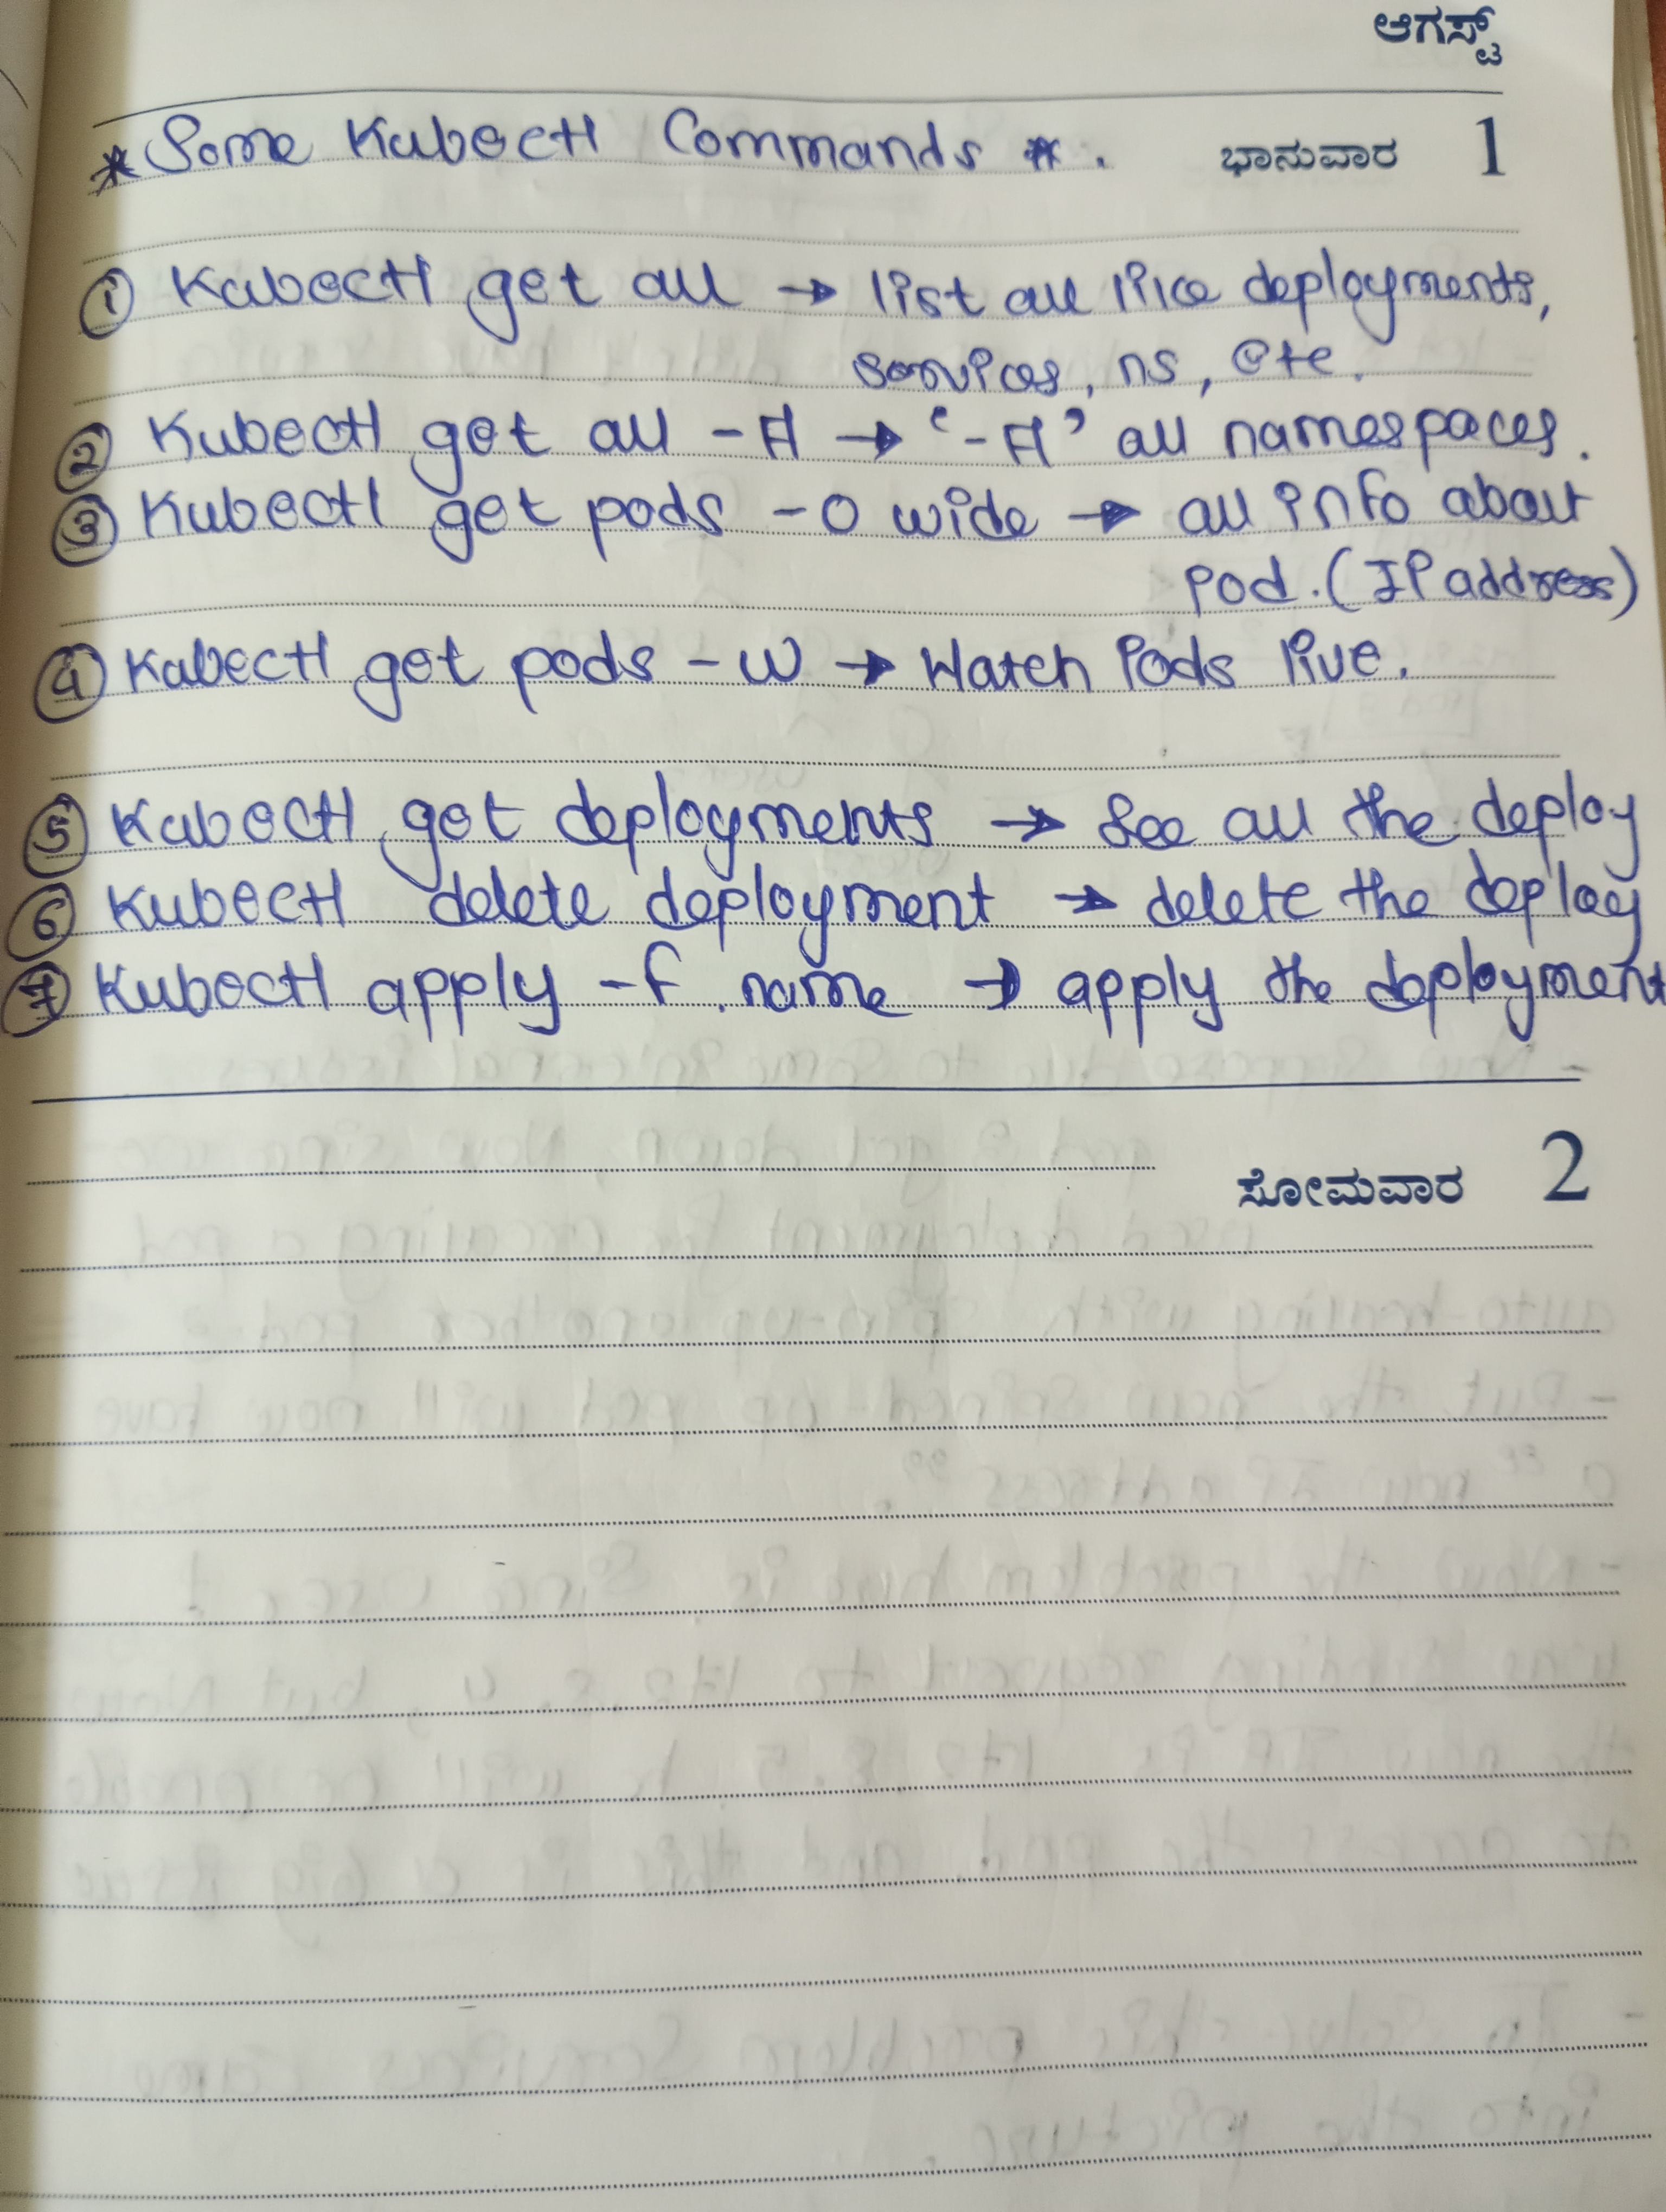 ಆಗಸ್ಟ್
* Some Kubectl Commands * .
ಭಾನುವಾರ 1
① Kubectl get all → list all like deployments,
services, ns, etc.
② Kubectl get all -A → '-A' all namespaces.
③ Kubectl get pods -o wide → all info about
pod. (IP address)
④ Kubectl get pods -w → Watch Pods live.
⑤ Kubectl get deployments → See all the deploy
⑥ Kubectl delete deployment → delete the deploy
⑦ Kubectl apply -f. name → apply the deployment
ಸೋಮವಾರ 2